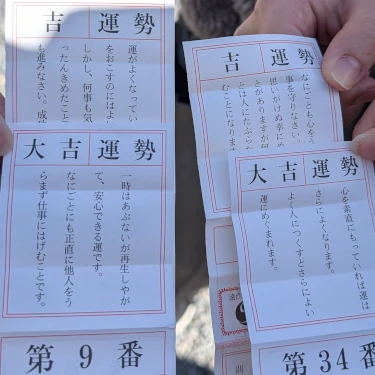 吉 運勢
運がよくなってい
をおこすのにはよ
しかし、何事も気
ったんきめたこと
も進みなさい。成
大吉 運勢
一時はあぶないが再生しやが
て、安心できる運です。
なにごとにも正直に他人をう
らまず仕事にはげむことです。
第9番
吉 運勢
なにごとも心をう
事を守りなさい。
思いがけぬ幸にめ
とがありますが何
とは人にたぶらか
むことになります
大吉 運勢
心を素直にもっていれば運は
さらによくなります。
よく人につくすとさらによい
運にめぐまれます。
第34番